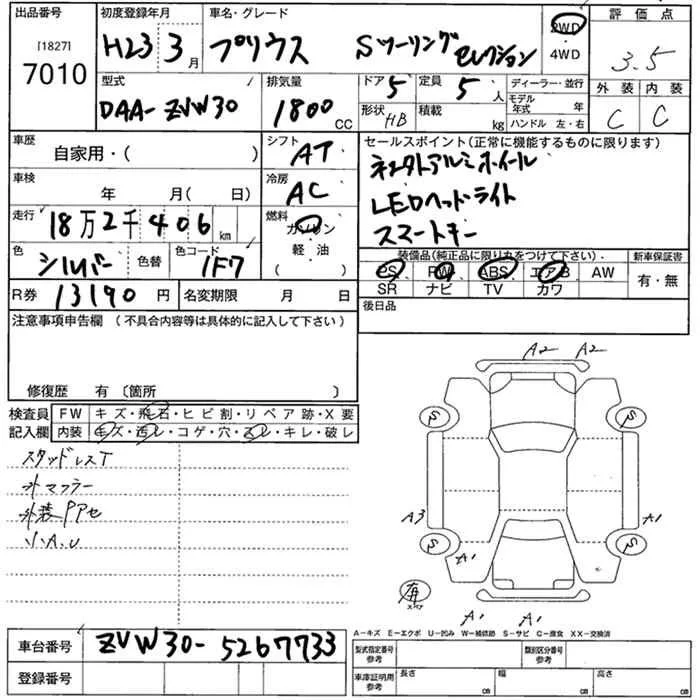 出品番号 初度登録年月 車名・グレード 2WD 評価点
[1827] 7010 H23 3月 プリウス Sツーリングセレクション 4WD 3.5
型式 排気量 ドア 5 定員 5人 ディーラー・並行 外装 内装
DAA-ZVW30 1800CC 形状 HB 積載 kg モデル年式 年 C C
ハンドル 左・右
車歴 シフト AT セールスポイント(正常に機能するものに限ります)
自家用・( ) ネクストアルミホイール
車検 冷房 AC LEDヘッドライト
年 月( 日) スマートキー
走行 18万2千406km 燃料 ガソリン
軽油
装備品(純正品に限り丸をつけて下さい) 新車保証書
色 シルバー 色替 色コード 1F7 PS PW ABS エアB AW 有・無
SR ナビ TV カワ
R券 13190円 名変期限 月 日 後日品
注意事項申告欄(不具合内容等は具体的に記入して下さい)
修復歴 有〔箇所 〕
検査員 FW キズ・飛石・ヒビ割・リペア跡・X要
記入欄 内装 キズ・汚レ・コゲ・穴・スレ・キレ・破レ
スタッドレスT
外マフラー
外装Pアセ
小A.U
A2 A2
S S
A3 A1
S A1 S
有
A1 A1
A-キズ E-エクボ U-凹み W-補修跡 S-サビ C-腐食 XX-交換済
車台番号 ZVW30-5267733
登録番号
型式指定番号 参考 類別区分番号 参考
車庫証明用 参考 長さ cm 幅 cm 高さ cm